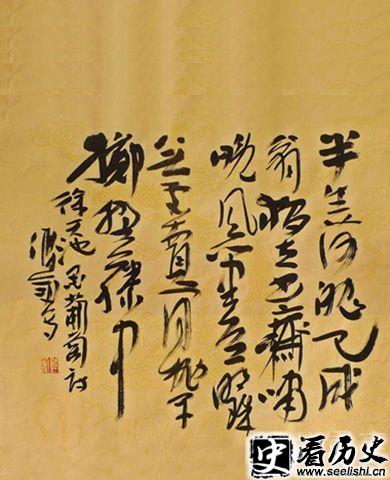 半生落魄已成
翁獨立書齋嘯
晚風筆底明珠
無處賣閒拋閒
擲野藤中
徐天池墨葡萄詩
史 看历史
www.seelishi.cn